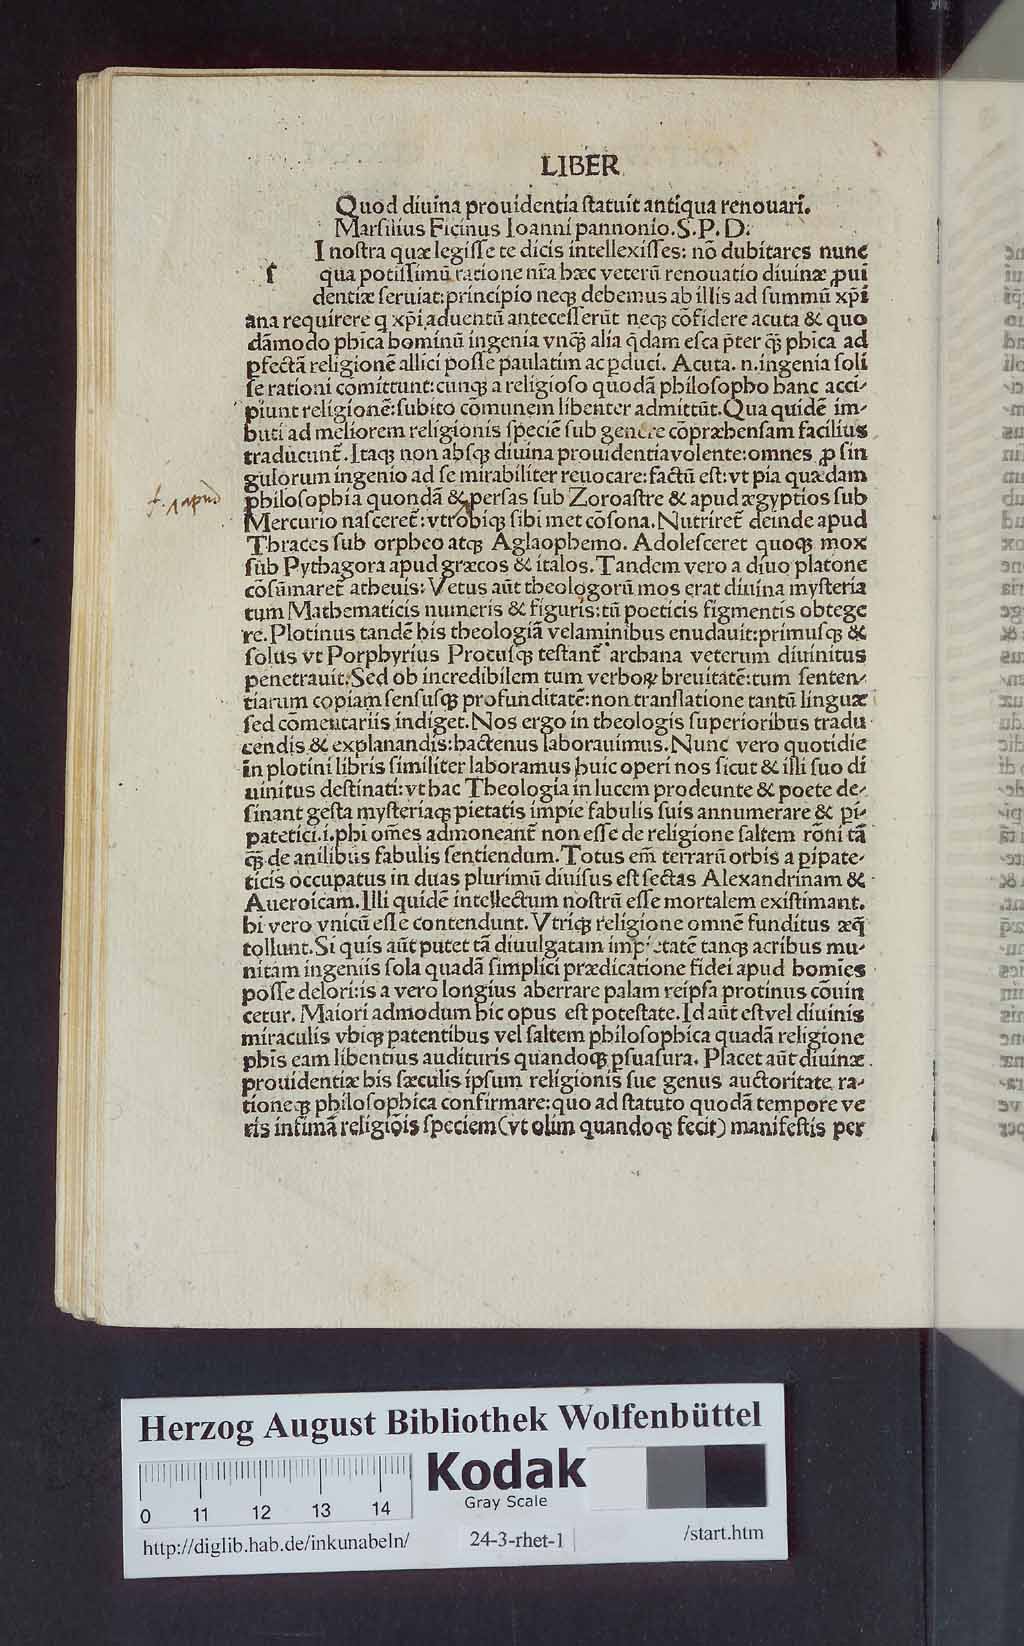 LIBER
Quod diuina prouidentia ſtatuit antiqua renouari.
Marſilius Ficinus Ioanni pannonio. S. P. D.
I noſtra quæ legiſſe te dicis intellexiſſes: nō dubitares nunc
ſ qua potiſſimū ratione nr̄a hæc veterū renouatio diuinæ ꝓui
dentiæ ſeruiat: principio neqꝫ debemus ab illis ad ſummū xp̄i
ana requirere q xp̄i aduentū anteceſſerūt neqꝫ cōfidere acuta & quo
dāmodo phica hominū ingenia vnqꝫ alia q̄dam eſca p̄ter qꝫ̄ phica ad
ꝑfectā religionē allici poſſe paulatim ac ꝑduci. Acuta .n. ingenia ſoli
ſe rationi comittunt: cunqꝫ a religioſo quodā philoſopho hanc acci-
piunt religionē: ſubito cōmunem libenter admittūt. Qua quidē im-
buti ad meliorem religionis ſpeciē ſub genere cōpræhenſam facilius
traducunt̄. Itaqꝫ non abſqꝫ diuina prouidentia volente: omnes ꝓ ſin
gulorum ingenio ad ſe mirabiliter reuocare: factū eſt: vt pia quædam
philoſophia quondā & perſas ſub Zoroaſtre & apud ægyptios ſub
apud
Mercurio naſceret̄: vtrobiqꝫ ſibi met cōſona. Nutriret̄ deinde apud
Thraces ſub orpheo atqꝫ Aglaophemo. Adoleſceret quoqꝫ mox
ſub Pythagora apud græcos & italos. Tandem vero a diuo platone
cōſūmaret̄ athenis: Vetus aūt theologorū mos erat diuina myſteria
tum Mathematicis numeris & figuris: tū poeticis figmentis obtege
re. Plotinus tandē his theologiā velaminibus enudauit: primuſqꝫ &
ſolus vt Porphyrius Procuſqꝫ teſtant̄ archana veterum diuinitus
penetrauit. Sed ob incredibilem tum verboꝝ breuitatē: tum ſenten-
tiarum copiam ſenſuſqꝫ profunditatē: non tranſlatione tantū linguæ
ſed cōmentariis indiget. Nos ergo in theologis ſuperioribus tradu
cendis & explanandis: hactenus laborauimus. Nunc vero quotidie
in plotini libris ſimiliter laboramus huic operi nos ſicut & illi ſuo di
uinitus deſtinati: vt hac Theologia in lucem prodeunte & poete de-
ſinant geſta myſteriaqꝫ pietatis impie fabulis ſuis annumerare & ꝑi-
patetici .i. phi om̄es admoneant̄ non eſſe de religione ſaltem rōni tā
qꝫ̄ de anilibus fabulis ſentiendum. Totus em̄ terrarū orbis a ꝑipate-
ticis occupatus in duas plurimū diuiſus eſt ſectas Alexandrinam &
Aueroicam. Illi quidē intellectum noſtrū eſſe mortalem exiſtimant.
hi vero vnicū eſſe contendunt. Vtriqꝫ religione omnē funditus æq̄
tollunt. Si quis aūt putet tā diuulgatam impietatē tanqꝫ acribus mu-
nitam ingeniis ſola quadā ſimplici prædicatione fidei apud homīes
poſſe delori: is a vero longius aberrare palam reipſa protinus cōuin
cetur. Maiori admodum hic opus eſt poteſtate. Id aūt eſt vel diuinis
miraculis vbiqꝫ patentibus vel ſaltem philoſophica quadā religione
phis eam libentius audituris quandoqꝫ ꝑſuaſura. Placet aūt diuinæ
prouidentiæ his ſæculis ipſum religionis ſue genus auctoritate ra-
tioneqꝫ philoſophica confirmare: quo ad ſtatuto quodā tempore ve
ris inſimā religiōis ſpeciem (vt olim quandoqꝫ fecit) manifeſtis per
Herzog August Bibliothek Wolfenbüttel
Kodak
Gray Scale
0 11 12 13 14
http://diglib.hab.de/inkunabeln/ 24-3-rhet-1 /start.htm